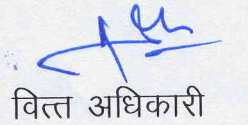 वित्त अधिकारी